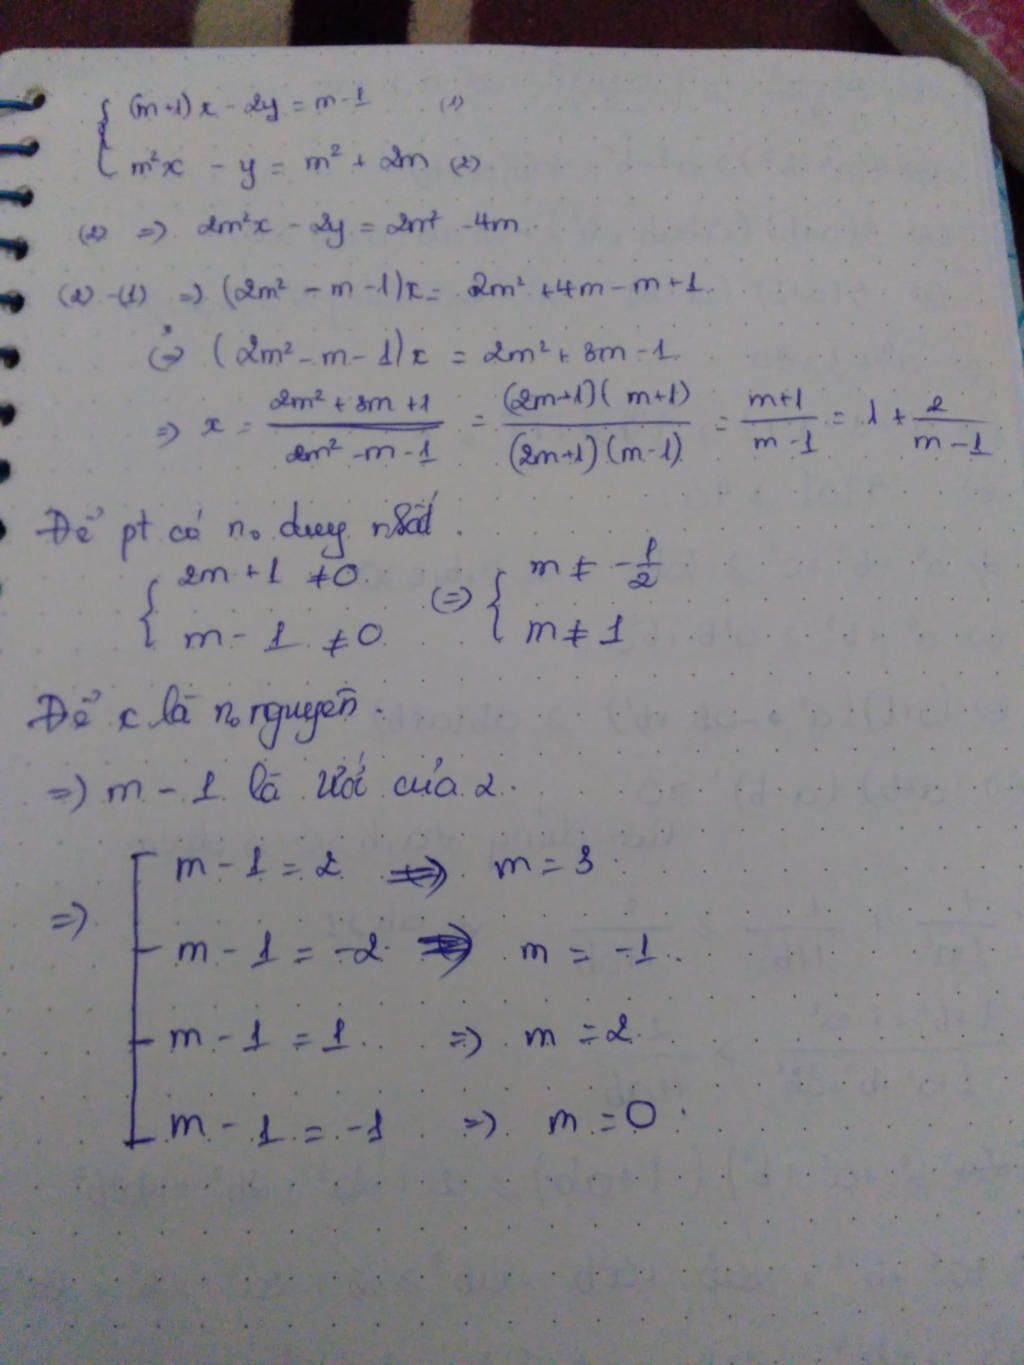 (m+1)x - 2y = m-1 (1)
m²x - y = m² + 2m (2)
(2) => 2m²x - 2y = 2m² - 4m.
(2) - (1) => (2m² - m - 1)x = 2m² + 4m - m + 1.
(=> (2m² - m - 1)x = 2m² + 3m - 1.
=> x = (2m² + 3m + 1)/(2m² - m - 1) = ((2m+1)(m+1))/((2m+1)(m-1)) = (m+1)/(m-1) = 1 + 2/(m-1)
Để pt có n₀ duy nhất.
{ 2m + 1 ≠ 0. (=> { m ≠ -1/2
m - 1 ≠ 0 m ≠ 1
Để x là n₀ nguyên.
=> m - 1 là Ước của 2.
m - 1 = 2 => m = 3
=> m - 1 = -2 => m = -1.
m - 1 = 1 => m = 2
m - 1 = -1 => m = 0